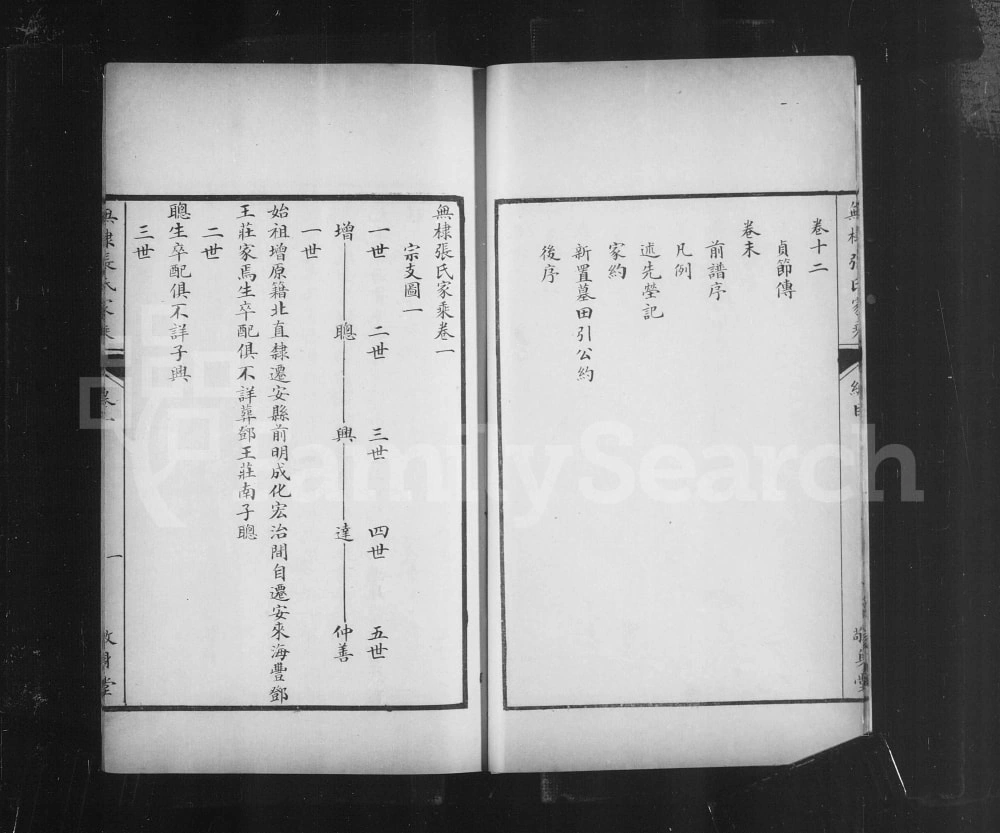 無棣張氏家乘
總目
敬身堂
卷十二
貞節傳
卷末
前譜序
凡例
述先塋記
家約
新置墓田引公約
後序
無棣張氏家乘卷一
宗支圖一
一世 二世 三世 四世 五世
增 聰 興 達 仲善
一世
始祖增原籍北直隸遷安縣前明成化宏治間自遷安來海豐鄧
王莊家焉生卒配俱不詳葬鄧王莊南子聰
二世
聰生卒配俱不詳子興
三世
無棣張氏家乘
卷一
一
敬身堂
FamilySearch